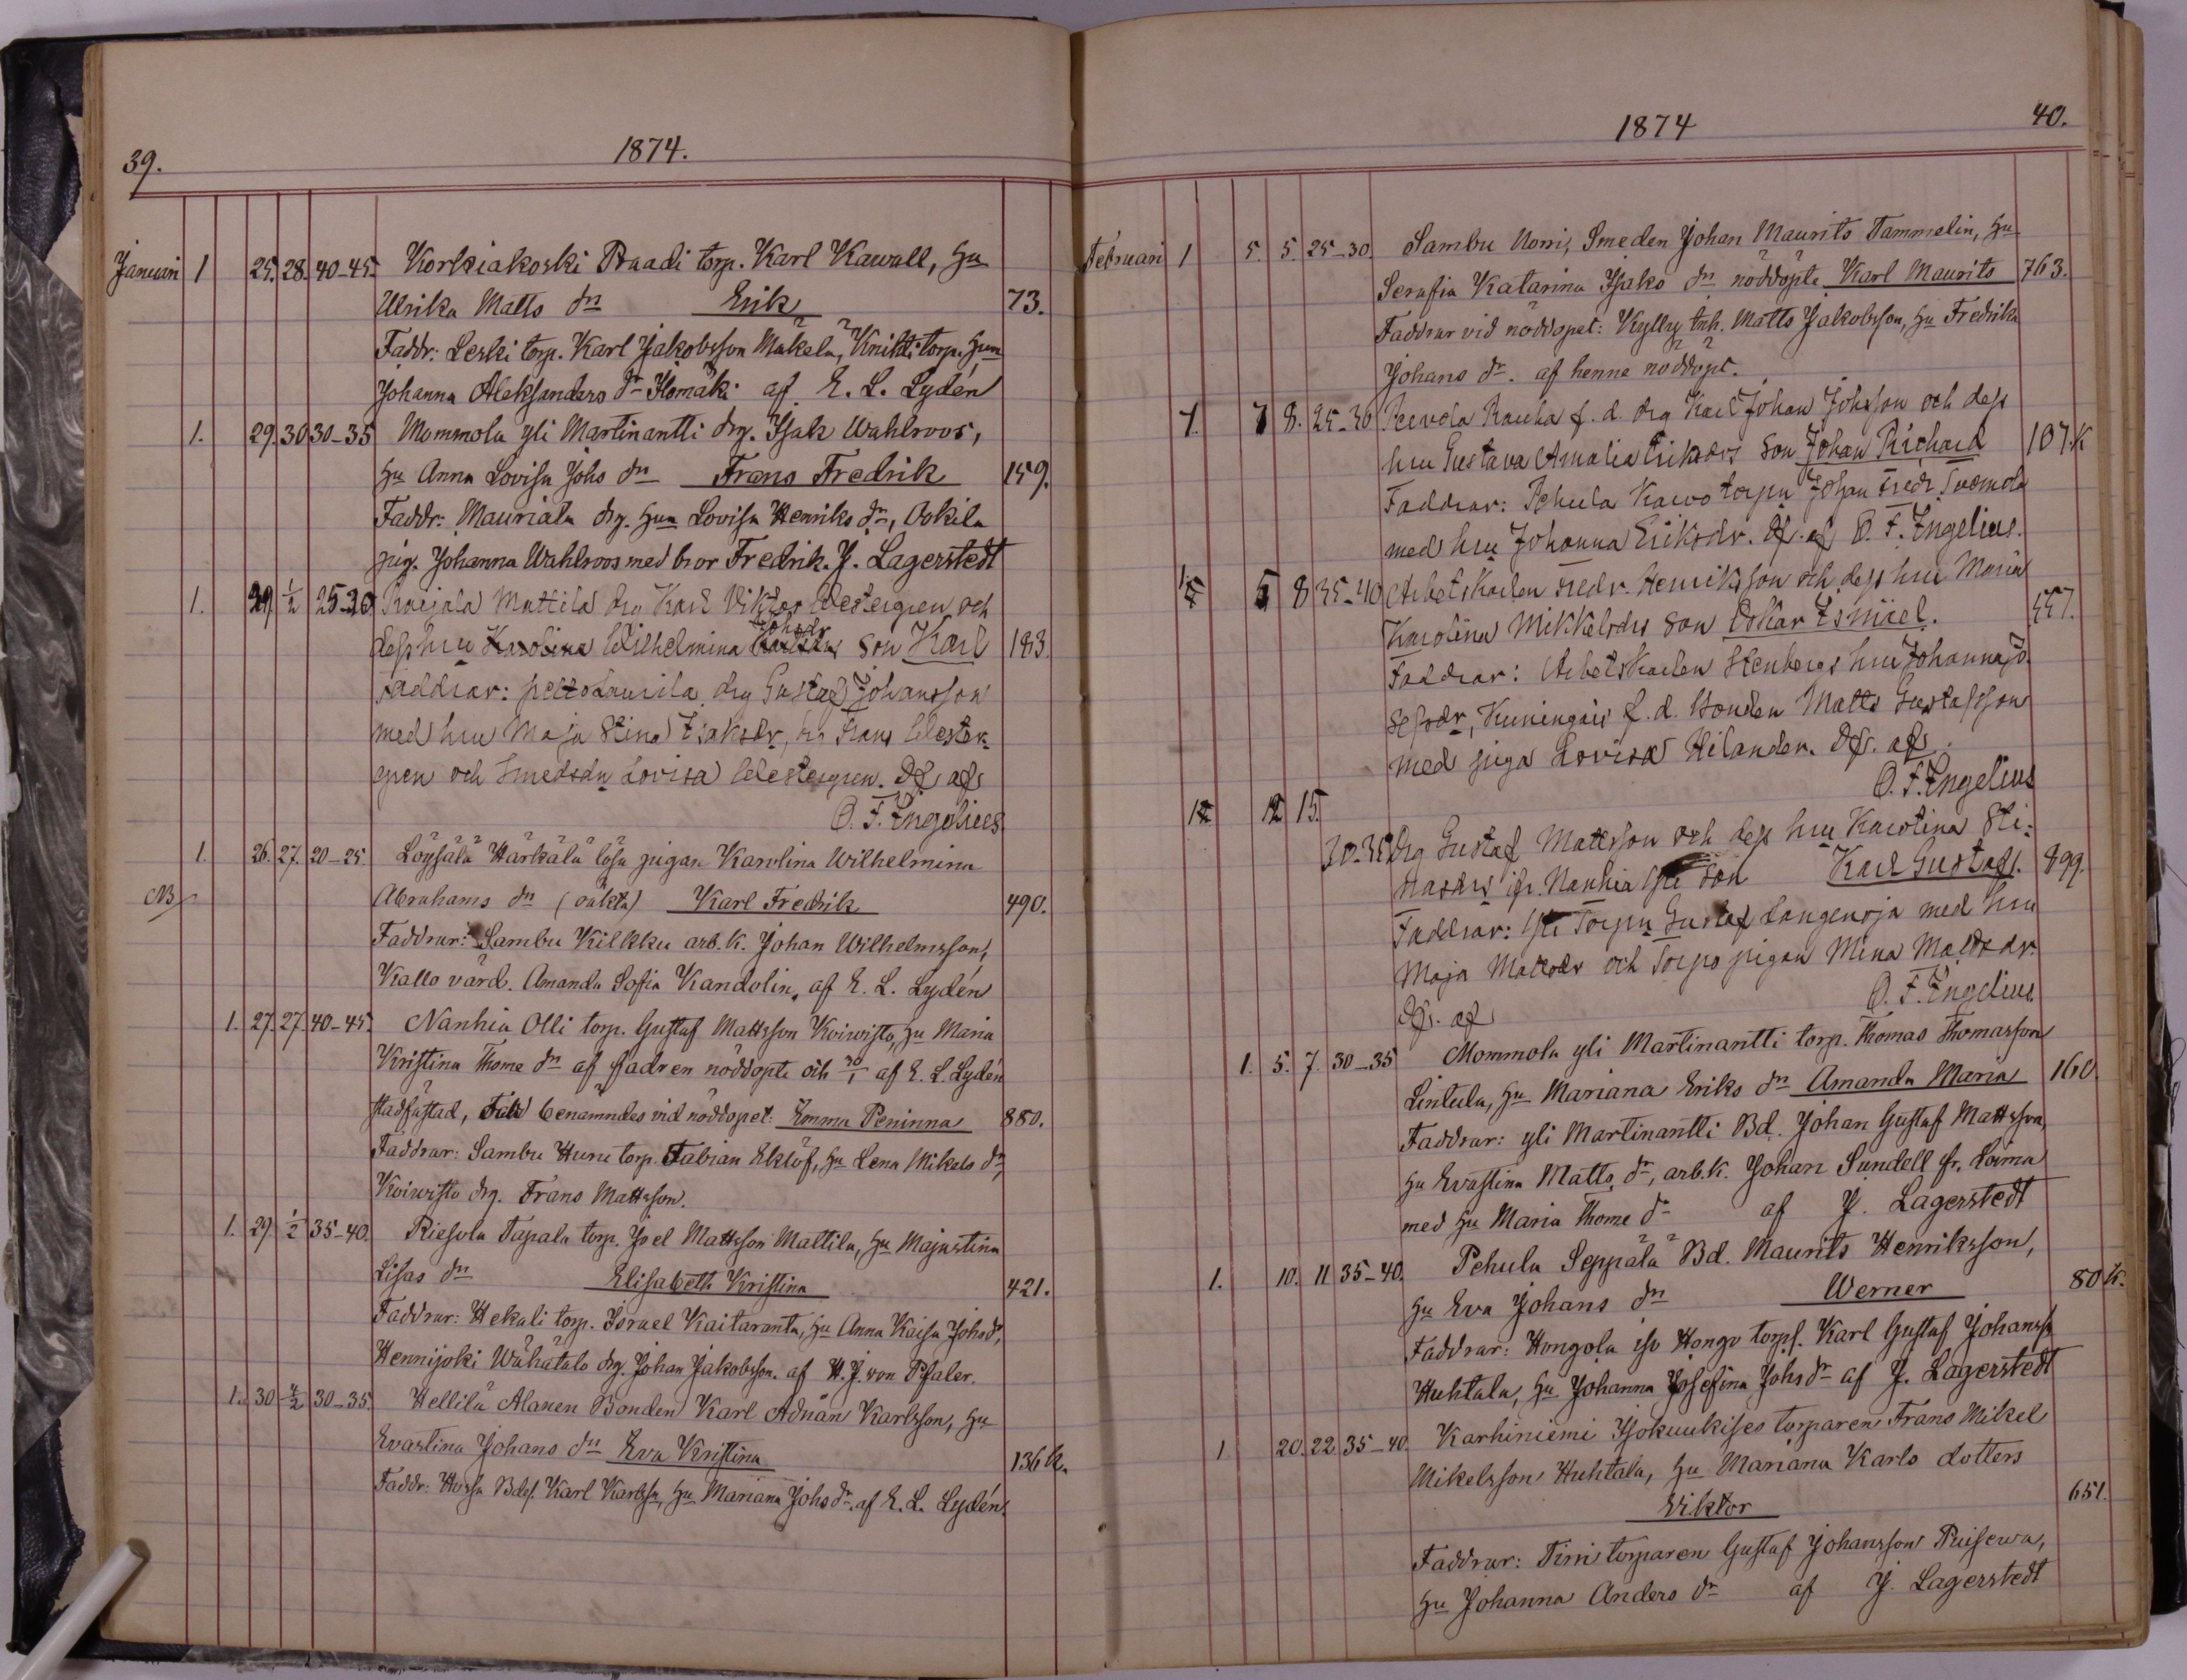 39.
1874.
Januari 1 25. 28. 40-45. Korkiakoski Praadi torp. Karl Kawall, Hu
Ulrika Matts dn Erik 73.
Faddr: Leski torp. Karl Jakobsson Mäkelä, Knihti torp. Hun
Johanna Aleksanders dr Ilomäki af E. L. Lydén
1. 29. 30 30-35 Mommola yli Martinantti drg. Isak Wahlroos,
Hu Anna Lovisa Johs dn Frans Fredrik 159.
Faddr: Mauriala drg. Hun Lovisa Henriks dr, Ookila
pig. Johanna Wahlroos med bror Fredrik. J. Lagerstedt
1. 29 1/2 25-30 Raijala Mattila drg Karl Viktor Westergren och
dess hru Karolina Wilhelmina Johsdr son Karl 183.
Faddrar: Peltolaurila drg Gustaf Johansson
med hru Maja Stina Isaksdr, drg Frans Wester-
gren och Smedsdn Lovisa Westergren. Df. af
O. F. Ingelius
1. 26. 27. 20-25 Löysälä Härkälä lösa pigan Karolina Wilhelmina
NB Abrahams dn (oäkta) Karl Fredrik 490.
Faddrar: Sambu Kilkku arb.k. Johan Wilhelmsson,
Kallo värd. Amanda Sofia Kandolin, af E. L. Lydén
1. 27. 27. 40-45. Nanhia Olli torp. Gustaf Mattsson Koivisto, Hu Maria
Kristina Thome dn af fadren nöddöpte och 30/1 af E. L. Lydén
stadfästad, benämndes vid nöddopet: Emma Peninna 880.
Faddrar: Sambu Huru torp. Fabian Eklöf, Hu Lena Mikels dr,
Koiwisto drg. Frans Mattsson.
1. 29 1/2 35-40. Riesola Tapala torp. Joel Mattsson Mattila, Hu Majastina
Lisas dn Elisabeth Kristina 421.
Faddrar: Hekali torp. Israel Kaitaranta, Hu Anna Kaisa Johsdr,
Hennijoki Wähätalo drg. Johan Jakobsson. af H. J. von Pfaler.
1. 30 4/2 30-35. Hellilä Alanen Bonden Karl Adrian Karlsson, Hu
Evastina Johans dn Eva Kristina 136 k.
Faddr: Bdes. Karl Karlsson, Hu Mariana Johs dr. af E. L. Lydén.
1874
40.
Februari 1 5. 5. 25-30. Sambu Norri, Smeden Johan Maurits Tammelin, Hu
Serafia Katarina Isaks dn nöddöpte Karl Maurits 763.
Faddrar vid nöddopet: Kylly inh. Matts Jakobsson, Hu Fredrika
Johans dr. af henne nöddöpt.
1. 7 8. 25-30 Peevola Rauha f. d. drg Karl Johan Johsson och dess
hru Gustava Amalia Eriksdrs son Johan Richard 107.K
Faddrar: Pehula Kaivo torpn Johan Fredr. Tuomola
med hru Johanna Eriksdr. Df. af O. F. Ingelius.
5 8 35-40 Arbetskarlen Fredr. Henriksson och dess hru Maria
Karolina Mikkelsdrs son Oskar Ismael. 557.
Faddrar: Arbetskarlen Stenbergs hru Johanna Jo-
sefsdr, Kuningais f. d. bonden Matts Gustafsson
med piga Lovisa Hilander. Df. af
O. F. Ingelius
12 15.
30-35 Drg Gustaf Mattsson och dess hru Karolina Sti-
nasdrs ifr. Nanhia son Karl Gustaf. 899.
Faddrar: Torpn Gustaf Langenoja med hru
Maja Mattsdr och Torps pigan Mina Mattsdr.
Df. af O. F. Ingelius
1. 5. 7. 30-35 Mommola yli Martinantti torp. Thomas Thomasson
Lintula, Hu Mariana Eriks dn Amanda Maria 160.
Faddrar: yli Martinantti Bd. Johan Gustaf Mattsson,
Hu Evastina Matts dr, arb.k. Johan Sundell fr. Loima
med Hu Maria Thome dr af J. Lagerstedt
1. 10. 11 35-40. Pehula Seppälä Bd. Maurits Henriksson,
Hu Eva Johans dn Werner 80 K.
Faddrar: Hongola iso Hongo torps. Karl Gustaf Johansson
Huhtala, Hu Johanna Josefina Johs dr af J. Lagerstedt
1 20. 22 35-40. Karhiniemi Isokuukises torparen Frans Mikel
Mikelsson Huhtala, Hu Mariana Karls dotters
Viktor 651.
Faddrar: Tirri torparen Gustaf Johansson Puisewa,
Hu Johanna Anders dr af J. Lagerstedt